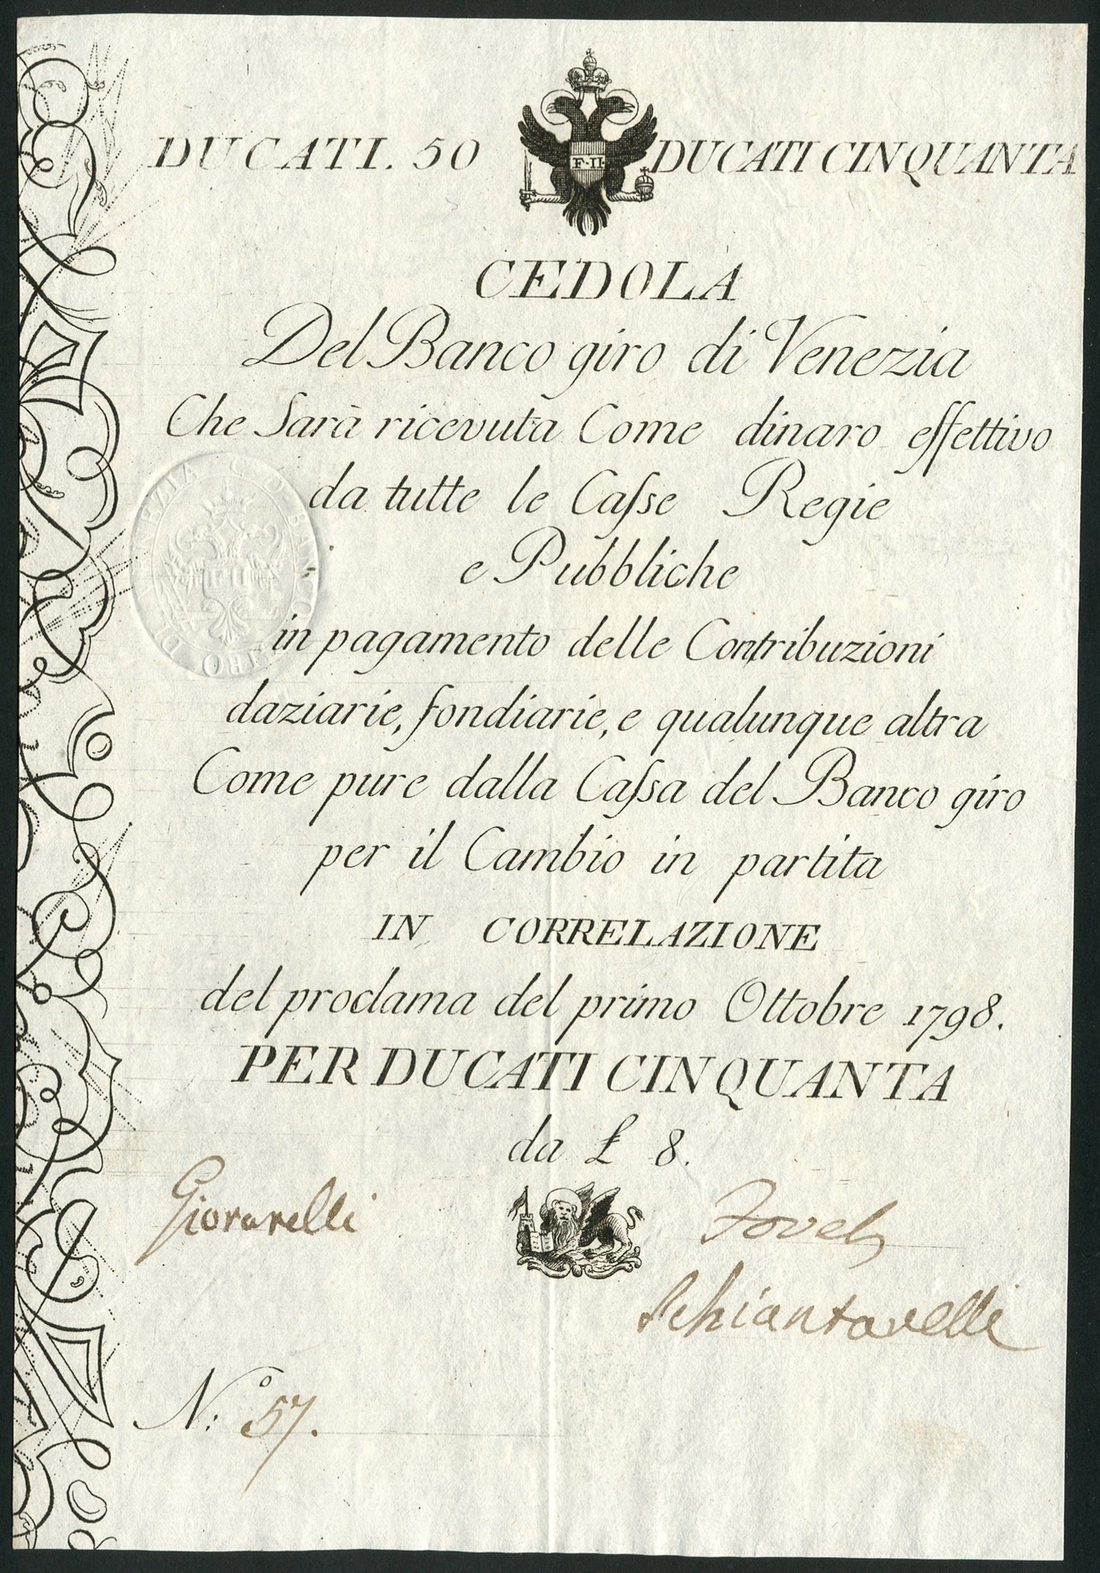 DUCATI. 50 DUCATI CINQUANTA
F·II·
CEDOLA
Del Banco giro di Venezia
Che Sarà ricevuta Come dinaro effettivo
da tutte le Caſse Regie
e Pubbliche
in pagamento delle Contribuzioni
daziarie, fondiarie, e qualunque altra
Come pure dalla Caſsa del Banco giro
per il Cambio in partita
IN CORRELAZIONE
del proclama del primo Ottobre 1798.
PER DUCATI CINQUANTA
da £ 8.
Schiantarelli
N:º 57.